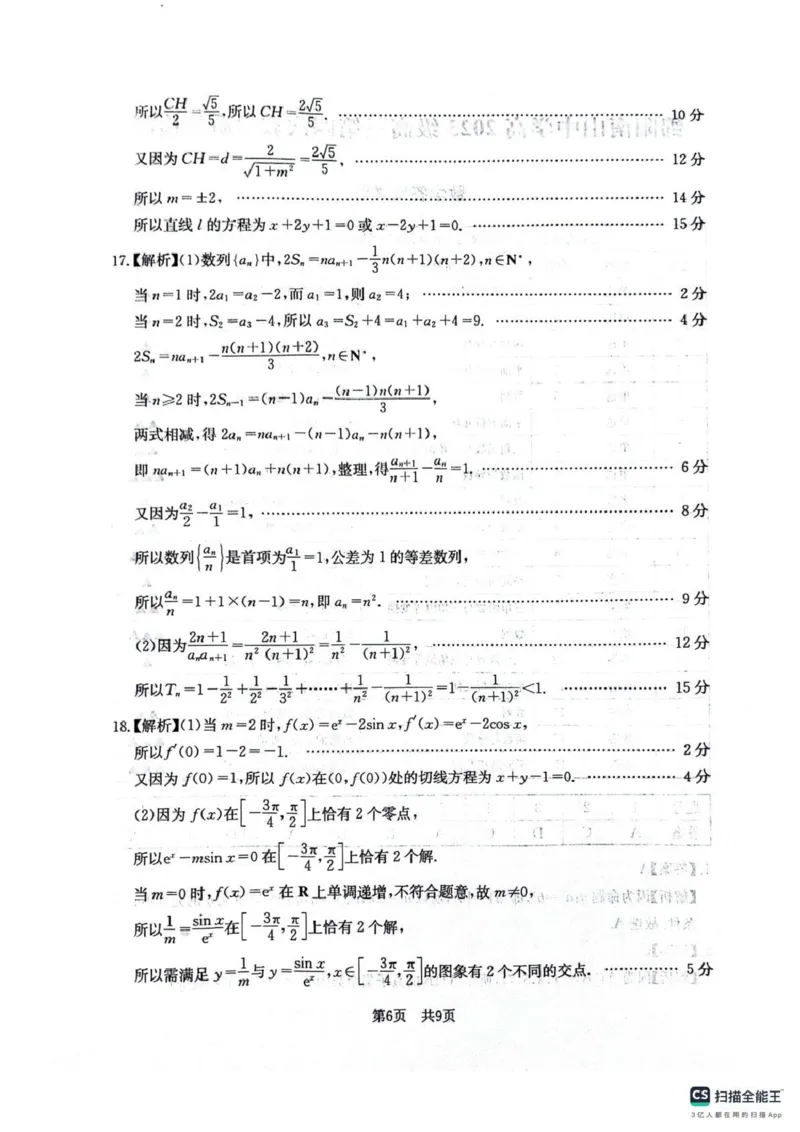 所以CH/2=√5/5,所以 CH=2√5/5. …… 10 分
又因为 CH=d=2/√(1+m²)=2√5/5, …… 12 分
所以 m=±2, …… 14 分
所以直线 l 的方程为 x+2y+1=0 或 x-2y+1=0. …… 15 分
17.【解析】(1)数列{aₙ}中,2Sₙ=naₙ₊₁-1/3n(n+1)(n+2),n∈N*,
当 n=1 时,2a₁=a₂-2,而 a₁=1,则 a₂=4; …… 2 分
当 n=2 时,S₂=a₃-4,所以 a₃=S₂+4=a₁+a₂+4=9. …… 4 分
2Sₙ=naₙ₊₁-n(n+1)(n+2)/3,n∈N*,
当 n≥2 时,2Sₙ₋₁=(n-1)aₙ-(n-1)n(n+1)/3,
两式相减,得 2aₙ=naₙ₊₁-(n-1)aₙ-n(n+1),
即 naₙ₊₁=(n+1)aₙ+n(n+1),整理,得aₙ₊₁/(n+1)-aₙ/n=1. …… 6 分
又因为a₂/2-a₁/1=1, …… 8 分
所以数列{aₙ/n}是首项为a₁/1=1,公差为 1 的等差数列,
所以aₙ/n=1+1×(n-1)=n,即 aₙ=n². …… 9 分
(2)因为(2n+1)/(aₙaₙ₊₁)=(2n+1)/(n²(n+1)²)=1/n²-1/(n+1)², …… 12 分
所以Tₙ=1-1/2²+1/2²-1/3²+……+1/n²-1/(n+1)²=1-1/(n+1)²<1. …… 15 分
18.【解析】(1)当 m=2 时,f(x)=eˣ-2sin x,f′(x)=eˣ-2cos x,
所以f′(0)=1-2=-1. …… 2 分
又因为 f(0)=1,所以 f(x)在(0,f(0))处的切线方程为 x+y-1=0. …… 4 分
(2)因为 f(x)在[-3π/4,π/2]上恰有 2 个零点,
所以eˣ-msin x=0 在[-3π/4,π/2]上恰有 2 个解.
当 m=0 时,f(x)=eˣ 在 R 上单调递增,不符合题意,故 m≠0,
所以1/m=sin x/eˣ在[-3π/4,π/2]上恰有 2 个解,
所以需满足 y=1/m与 y=sin x/eˣ,x∈[-3π/4,π/2]的图象有 2 个不同的交点. …… 5 分
第6页 共9页
CS 扫描全能王
3亿人都在用的扫描App